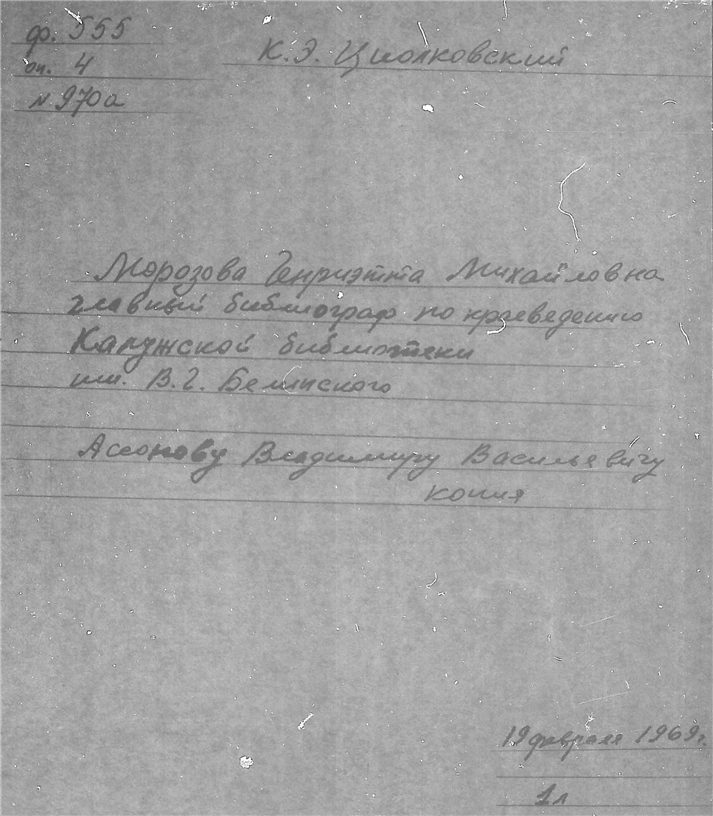 ф. 555
К.Э. Циолковский
оп. 4
N 970а
Морозова Генриэтта Михайловна
главный библиограф по краеведению
Калужской библиотеки
им. В.Г. Белинского
Ассонову Владимиру Васильевичу
копия
19 февраля 1969 г.
1 л